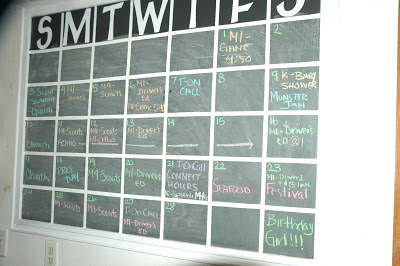 S M T W T F S
1 MI-
GAME
4:50
2
3
Church
4 MI-
Scouts
5 M9
Scouts
6 MI-Driver's
ED
7 T-ON
CALL
8
9 K-BABY
SHOWER
MONSTER
JAM
10
Church
11
MI-Scouts
12
M9-Scouts
13
MI-Driver's
ED
14
15
16
MI-Driver's
ED @1
17
Church
18
PRES.
DAY
19
M9 Scouts
20
MI-Driver's
ED
21 T-ON
CONNECT
HOURS
22
SEAFOOD
23
MI-Driver's
ED @ 1pm
Festival
24
25
MI-Scouts
26
M9-Scouts
27
T-ON CALL
MI-Driver's
ED
28
Birthday
Girl!!!